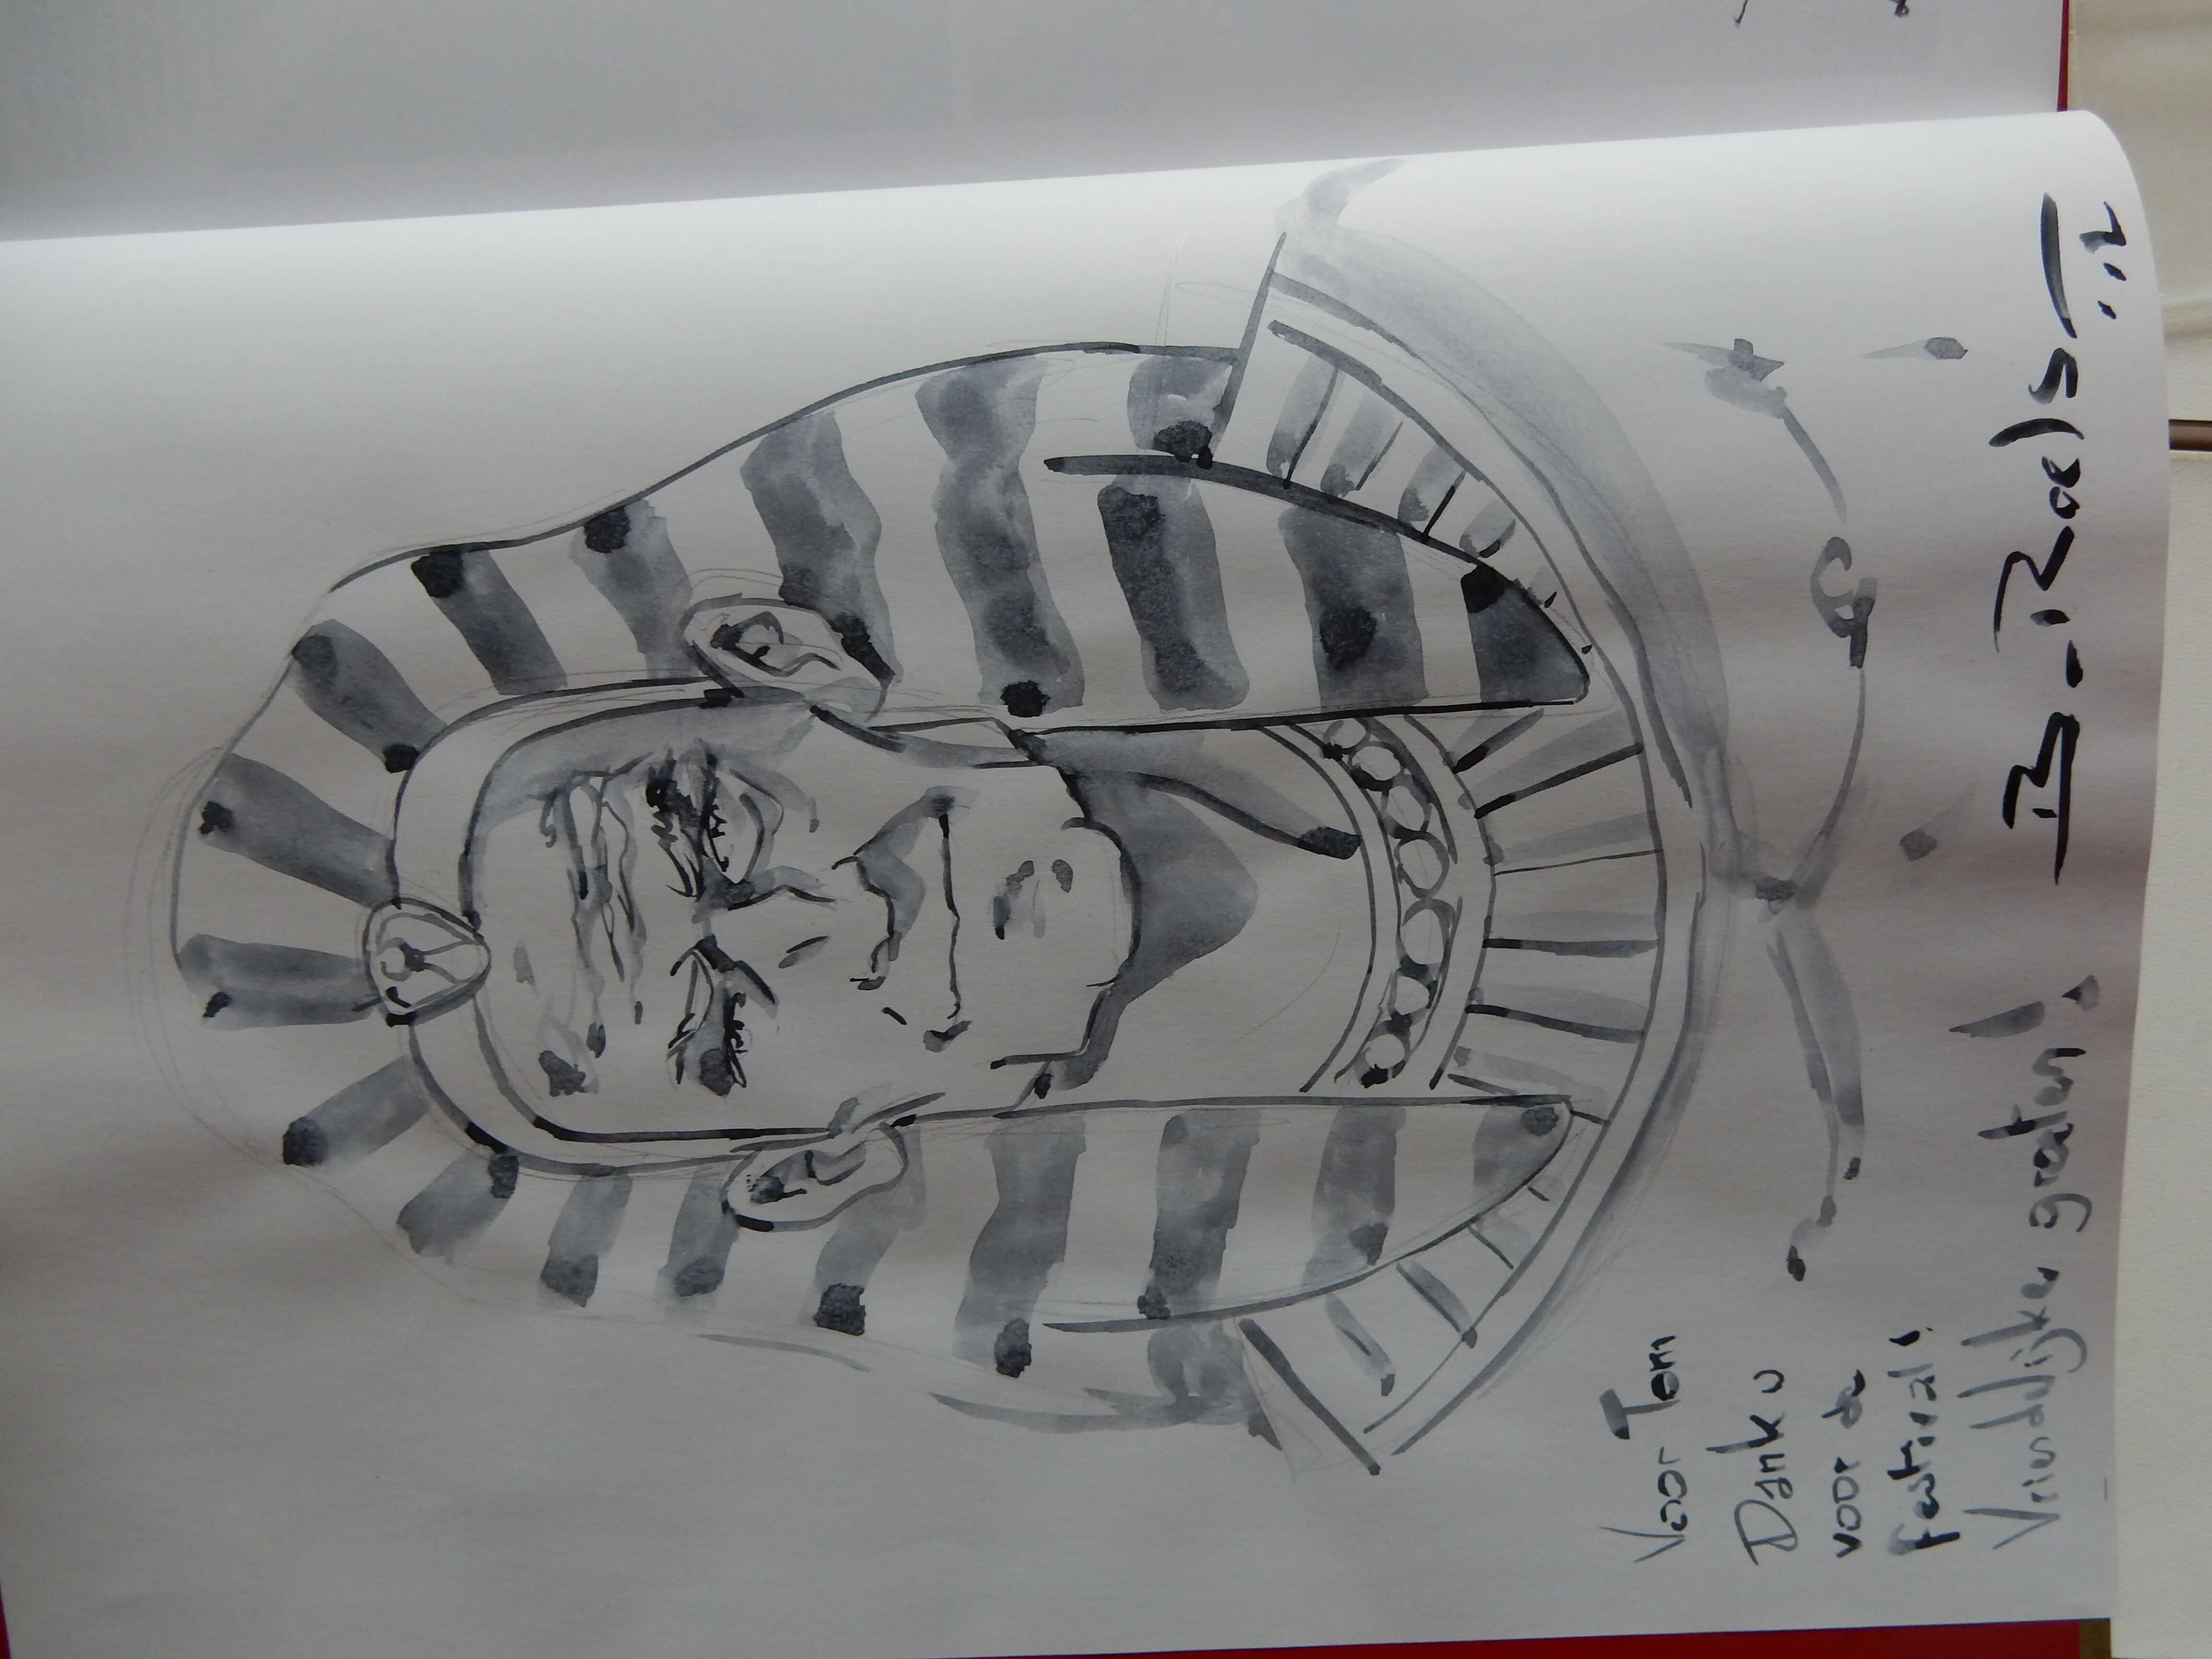 Voor Tom
Dank u
voor de
festival!
Vriendelijke groeten!
B_Roels